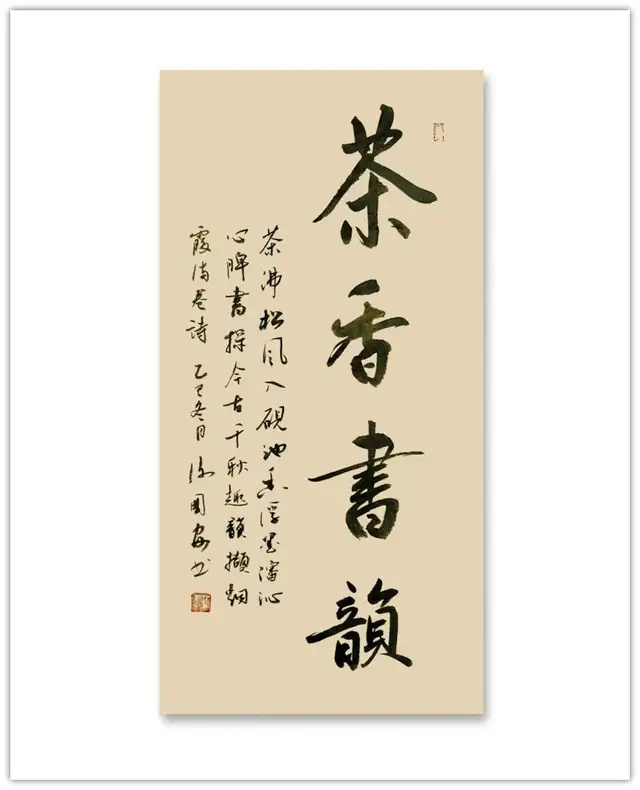 茶香書韻
茶沸松风入硯池香浮墨瀋沁
心脾書探今古千秋趣韻擷烟
霞满卷詩 乙巳冬日 国安书